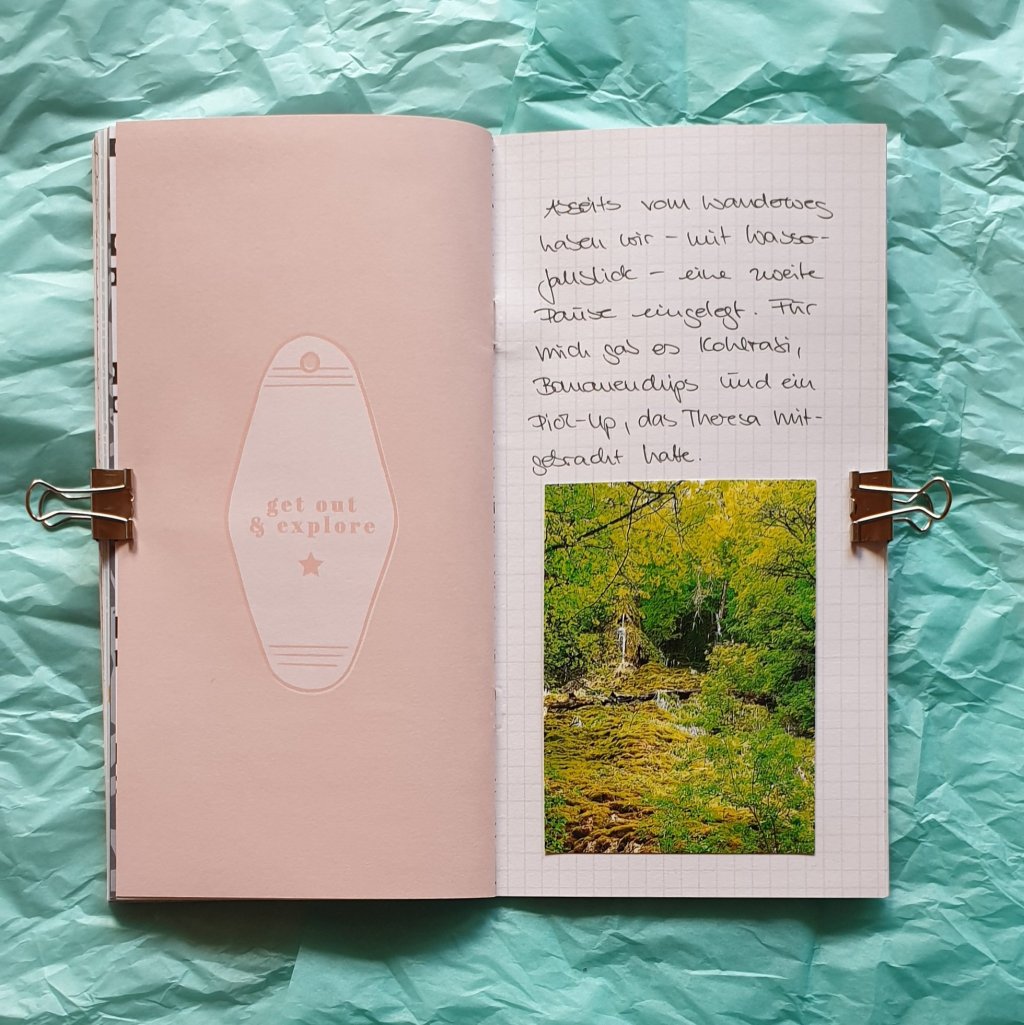 get out
& explore
Abseits vom Wanderweg
haben wir – mit Wasser-
fallblick – eine zweite
Pause eingelegt. Für
mich gab es Kohlrabi,
Bananenchips und ein
Pick-Up, das Theresa mit-
gebracht hatte.